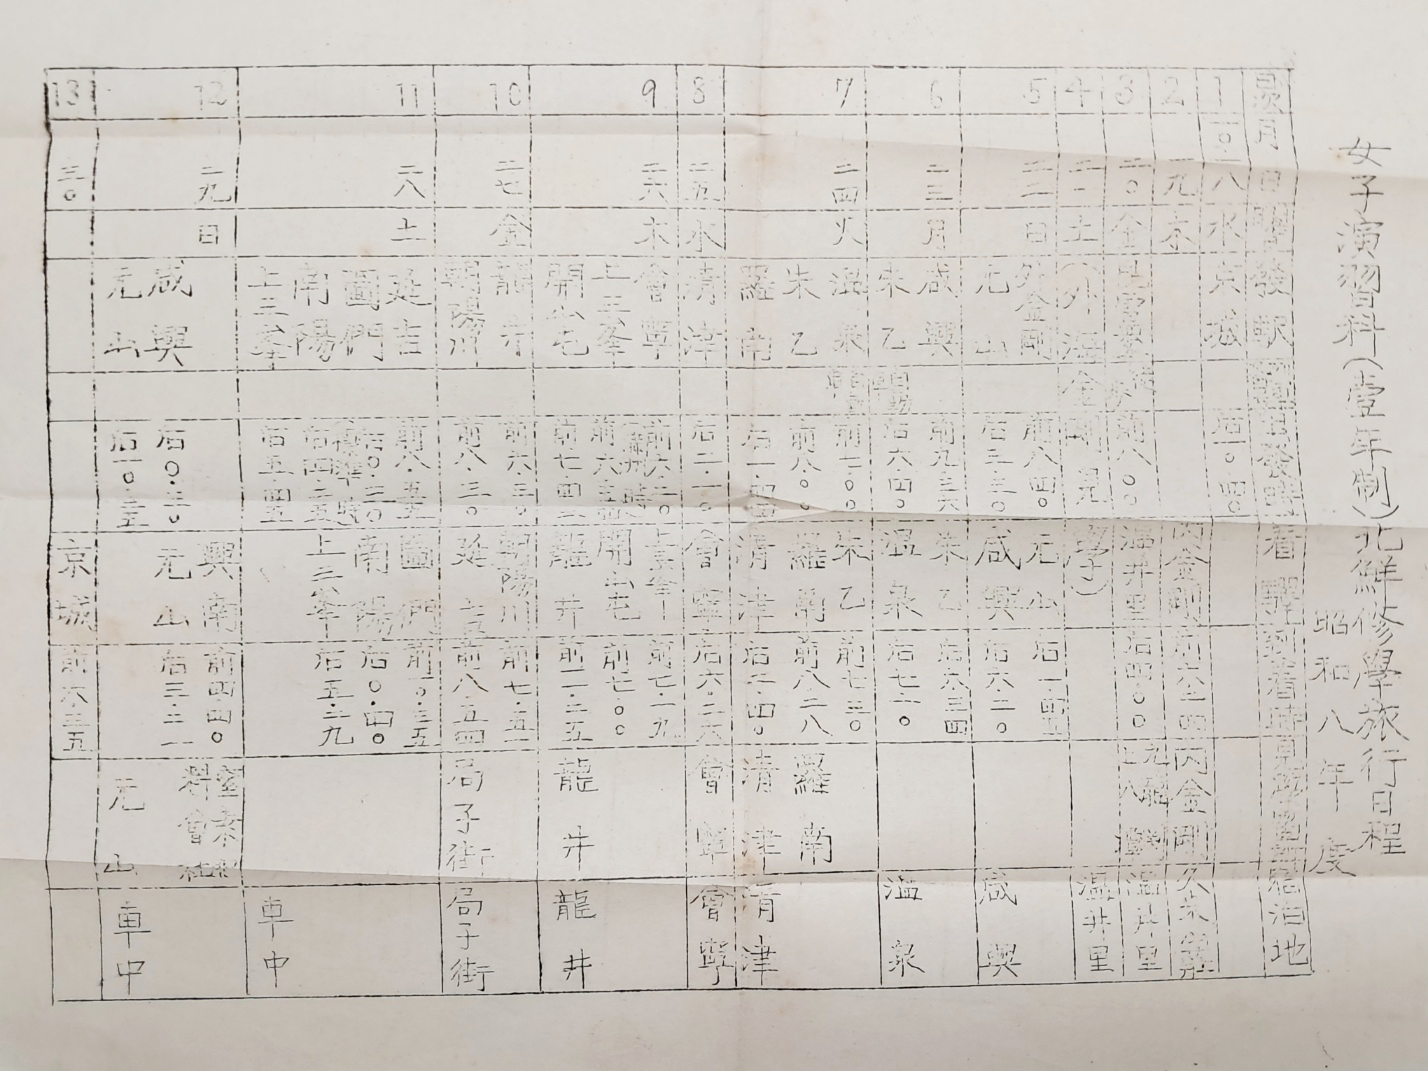 女子演習科(壹年制)北鮮修學旅行日程
昭和八年度
日次 月日 曜 發駅 發時 着駅 到着時 見學 宿泊地
1 一〇・一八 水 京城 后一〇・四〇
2 一九 木 內金剛 前六・二四 內金剛
3 二〇 金 前八・〇〇 溫井里 后四・〇〇 溫井里
4 二一 土 (外海金剛見學) 溫井里
5 二二 日 外金剛 前八・四〇 元山 后一・四五
元山 后三・三〇 咸興 后六・二〇 咸興
6 二三 月 咸興 前九・三六 朱乙 后六・三四
朱乙 自動車 后六・四〇 溫泉 后七・一〇 溫泉
7 二四 火 溫泉 自動車 前七・〇〇 朱乙 前七・三〇
朱乙 前八・〇〇 羅南 前八・二八 羅南
羅南 后一・四四 淸津 后二・四〇 淸津 淸津
8 二五 水 淸津 后二・一〇 會寧 后六・二六 會寧 會寧
9 二六 木 會寧 前六・二〇 上三峯 前七・一九
上三峯 開山屯 前七・〇〇
開山屯 前七・四五 龍井 前一一・三五 龍井 龍井
10 二七 金 龍井 前六・三〇 朝陽川 前七・五一
朝陽川 前八・三〇 延吉 前八・五四 局子街 局子街
11 二八 土 延吉 前八・五五 圖們 前一〇・三五
圖們 后〇・二〇 南陽 后〇・四〇
南陽 后四・二五 上三峯 后五・二九
上三峯 后五・四五 車中
12 二九 日 興南 前四・四〇 窒素肥料會社
咸興 后〇・三〇 元山 后三・二一
元山 后一〇・三五 元山 車中
13 三〇 京城 前六・三五